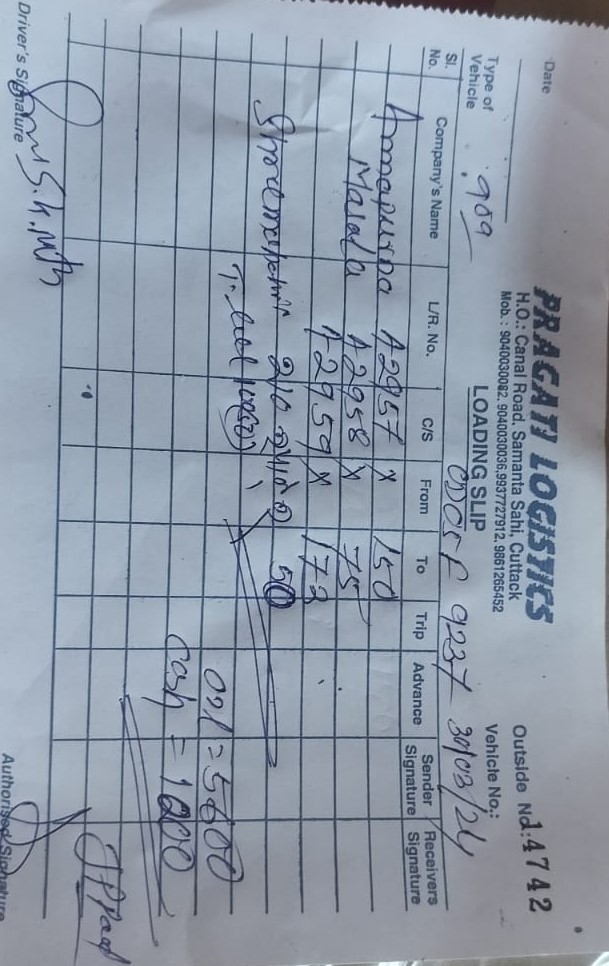 PRAGATI LOGISTICS
H.O.: Canal Road, Samanta Sahi, Cuttack
Mob. : 9040030082, 9040030036, 9937727912, 9861265452
LOADING SLIP
Outside No.: 14742
Date
Type of Vehicle 909
OD05F 9237 30/03/24
Vehicle No.:
Sl. No. Company's Name L/R. No. C/S From To Trip Advance Sender Signature Receivers Signature
Annapurna 42957 x 150
Masala 42958 x 75
42959 x 173
210 50
Oil = 5600
Cash = 1200
Driver's Signature
Authorised Signature